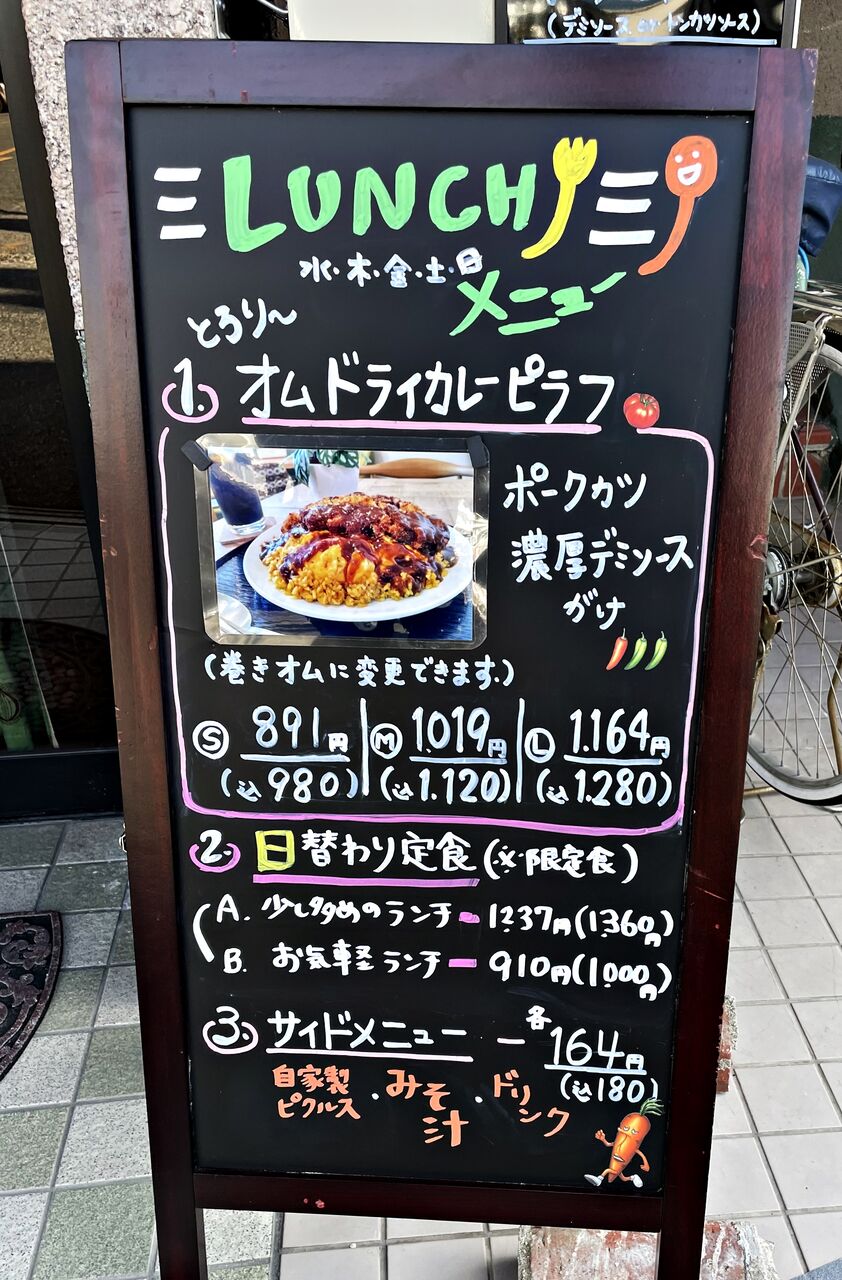 (デミソース or トンカツソース)
LUNCH
水・木・金・土・日
メニュー
とろり〜
1. オムドライカレーピラフ
ポークカツ
濃厚デミソース
がけ
(巻きオムに変更できます。)
Ⓢ 891円 Ⓜ 1.019円 Ⓛ 1.164円
(込980) (込1.120) (込1.280)
2. 日替わり定食(※限定食)
A. 少し多めのランチ - 1237円(1360円)
B. お気軽ランチ - 910円(1000円)
3. サイドメニュー - 各164円
(込180)
自家製ピクルス・みそ汁・ドリンク